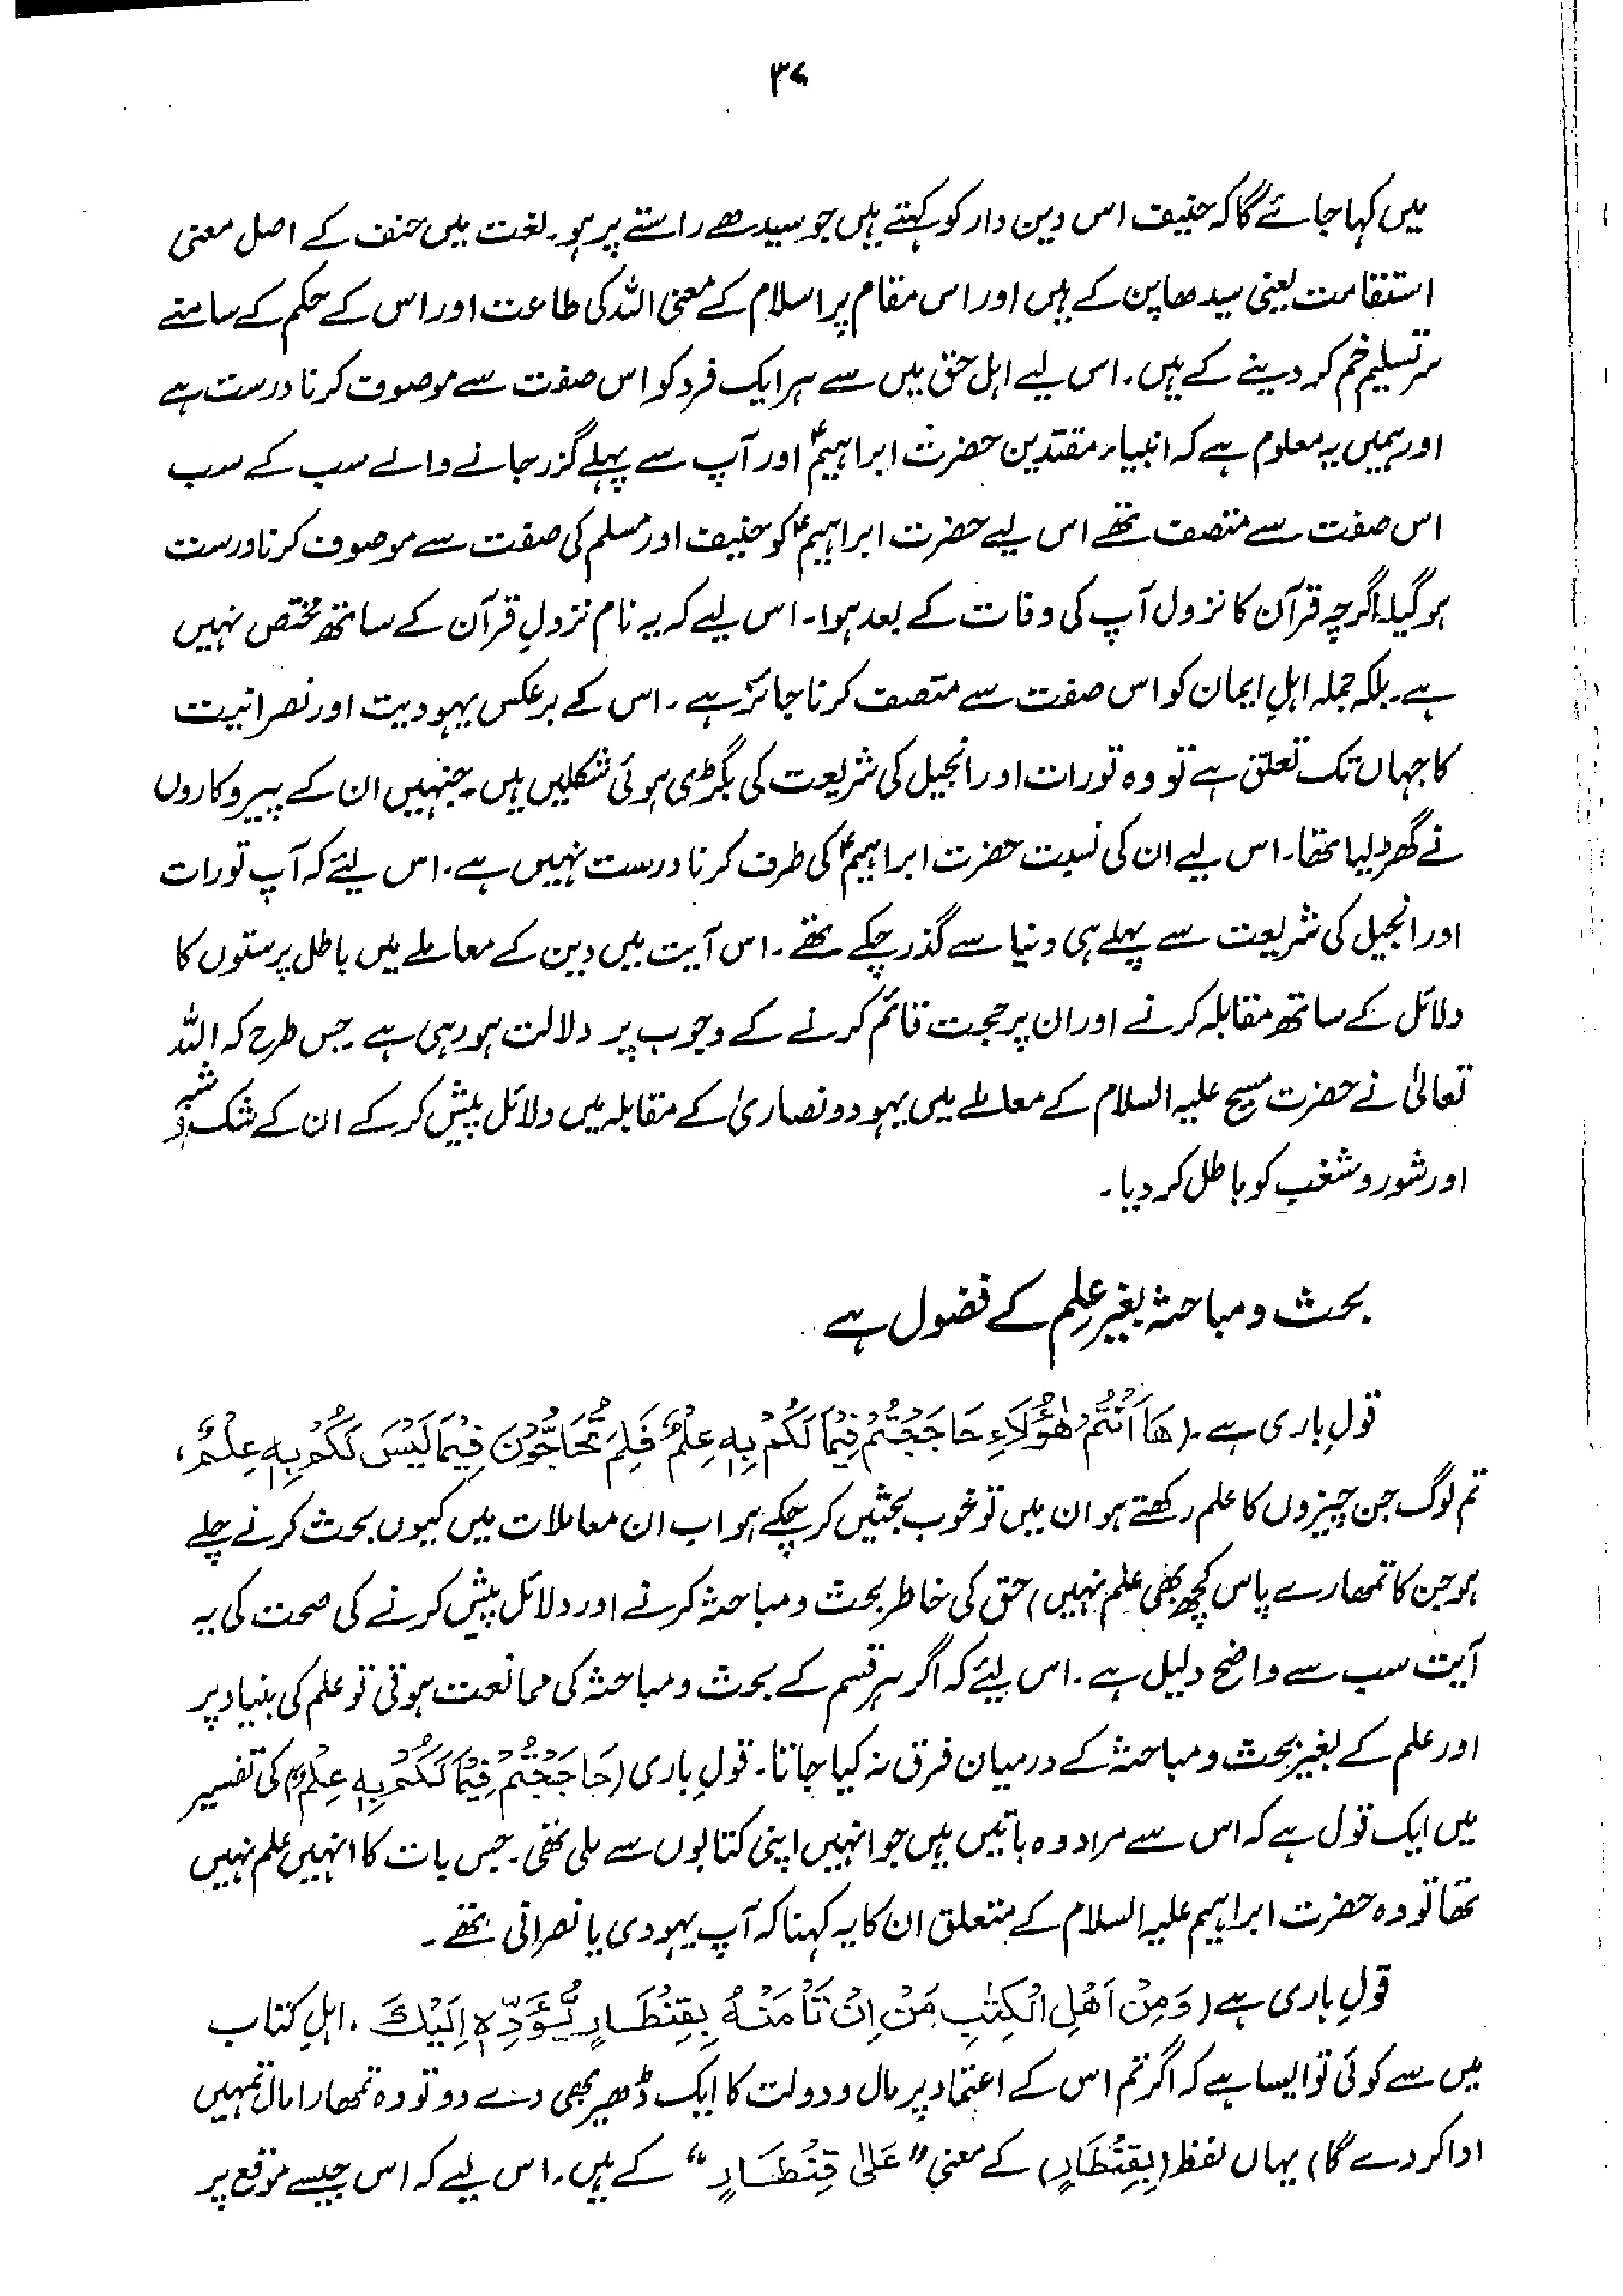 ۳۷
میں کہا جائے گا کہ حنیف اس دین دار کو کہتے ہیں جو سیدھے راستے پر ہو۔ لغت میں حنف کے اصل معنی
استقامت یعنی سیدھا پن کے ہیں اور اس مقام پر اسلام کے معنی اللہ کی طاعت اور اس کے حکم کے سامنے
سر تسلیم خم کر دینے کے ہیں۔ اس لیے اہل حق میں سے ہر ایک فرد کو اس صفت سے موصوف کرنا درست ہے
اور ہمیں یہ معلوم ہے کہ انبیاء مقتدین حضرت ابراہیمؑ اور آپ سے پہلے گزر جانے والے سب کے سب
اس صفت سے متصف تھے اس لیے حضرت ابراہیمؑ کو حنیف اور مسلم کی صفت سے موصوف کرنا درست
ہو گیا۔ اگرچہ قرآن کا نزول آپ کی وفات کے بعد ہوا۔ اس لیے کہ یہ نام نزولِ قرآن کے ساتھ مختص نہیں
ہے۔ بلکہ جملہ اہلِ ایمان کو اس صفت سے متصف کرنا جائز ہے۔ اس کے برعکس یہودیت اور نصرانیت
کا جہاں تک تعلق ہے تو وہ تورات اور انجیل کی شریعت کی بگڑی ہوئی شکلیں ہیں۔ جنہیں ان کے پیروکاروں
نے گھڑ لیا تھا۔ اس لیے ان کی نسبت حضرت ابراہیمؑ کی طرف کرنا درست نہیں ہے۔ اس لیئے کہ آپ تورات
اور انجیل کی شریعت سے پہلے ہی دنیا سے گذر چکے تھے۔ اس آیت میں دین کے معاملے میں باطل پرستوں کا
دلائل کے ساتھ مقابلہ کرنے اور ان پر حجت قائم کرنے کے وجوب پر دلالت ہو رہی ہے۔ جس طرح کہ اللہ
تعالیٰ نے حضرت مسیح علیہ السلام کے معاملے میں یہود و نصاریٰ کے مقابلہ میں دلائل پیش کر کے ان کے شک و شبہ
اور شور و شغب کو باطل کر دیا۔
بحث و مباحثہ بغیر علِم کے فضول ہے
قولِ باری ہے۔ (هَا اَنْتُمْ هٰؤُلَاءِ حَاجَجْتُمْ فِيْمَا لَكُمْ بِهٖ عِلْمٌ فَلِمَ تُحَاجُّوْنَ فِيْمَا لَيْسَ لَكُمْ بِهٖ عِلْمٌ،
تم لوگ جن چیزوں کا علم رکھتے ہو ان میں تو خوب بحثیں کر چکے ہو اب ان معاملات میں کیوں بحث کرنے چلے
ہو جن کا تمھارے پاس کچھ بھی علم نہیں) حق کی خاطر بحث و مباحثہ کرنے اور دلائل پیش کرنے کی صحت کی یہ
آیت سب سے واضح دلیل ہے۔ اس لیئے کہ اگر ہر قسم کے بحث و مباحثہ کی ممانعت ہوتی تو علم کی بنیاد پر
اور علم کے بغیر بحث و مباحثہ کے درمیان فرق نہ کیا جاتا۔ قولِ باری (حَاجَجْتُمْ فِيْمَا لَكُمْ بِهٖ عِلْمٌ) کی تفسیر
میں ایک قول ہے کہ اس سے مراد وہ باتیں ہیں جو انہیں اپنی کتابوں سے ملی تھی۔ جس بات کا انہیں علم نہیں
تھا تو وہ حضرت ابراہیم علیہ السلام کے متعلق ان کا یہ کہنا کہ آپ یہودی یا نصرانی تھے۔
قولِ باری ہے (وَمِنْ اَهْلِ الْكِتٰبِ مَنْ اِنْ تَأْمَنْهُ بِقِنْطَارٍ يُّؤَدِّهٖ اِلَيْكَ، اہلِ کتاب
میں سے کوئی تو ایسا ہے کہ اگر تم اس کے اعتماد پر مال و دولت کا ایک ڈھیر بھی دے دو تو وہ تمھارا مال تمہیں
ادا کر دے گا) یہاں لفظ (بِقِنْطَارٍ) کے معنی "عَلٰى قِنْطَارٍ" کے ہیں۔ اس لیے کہ اس جیسے موقع پر